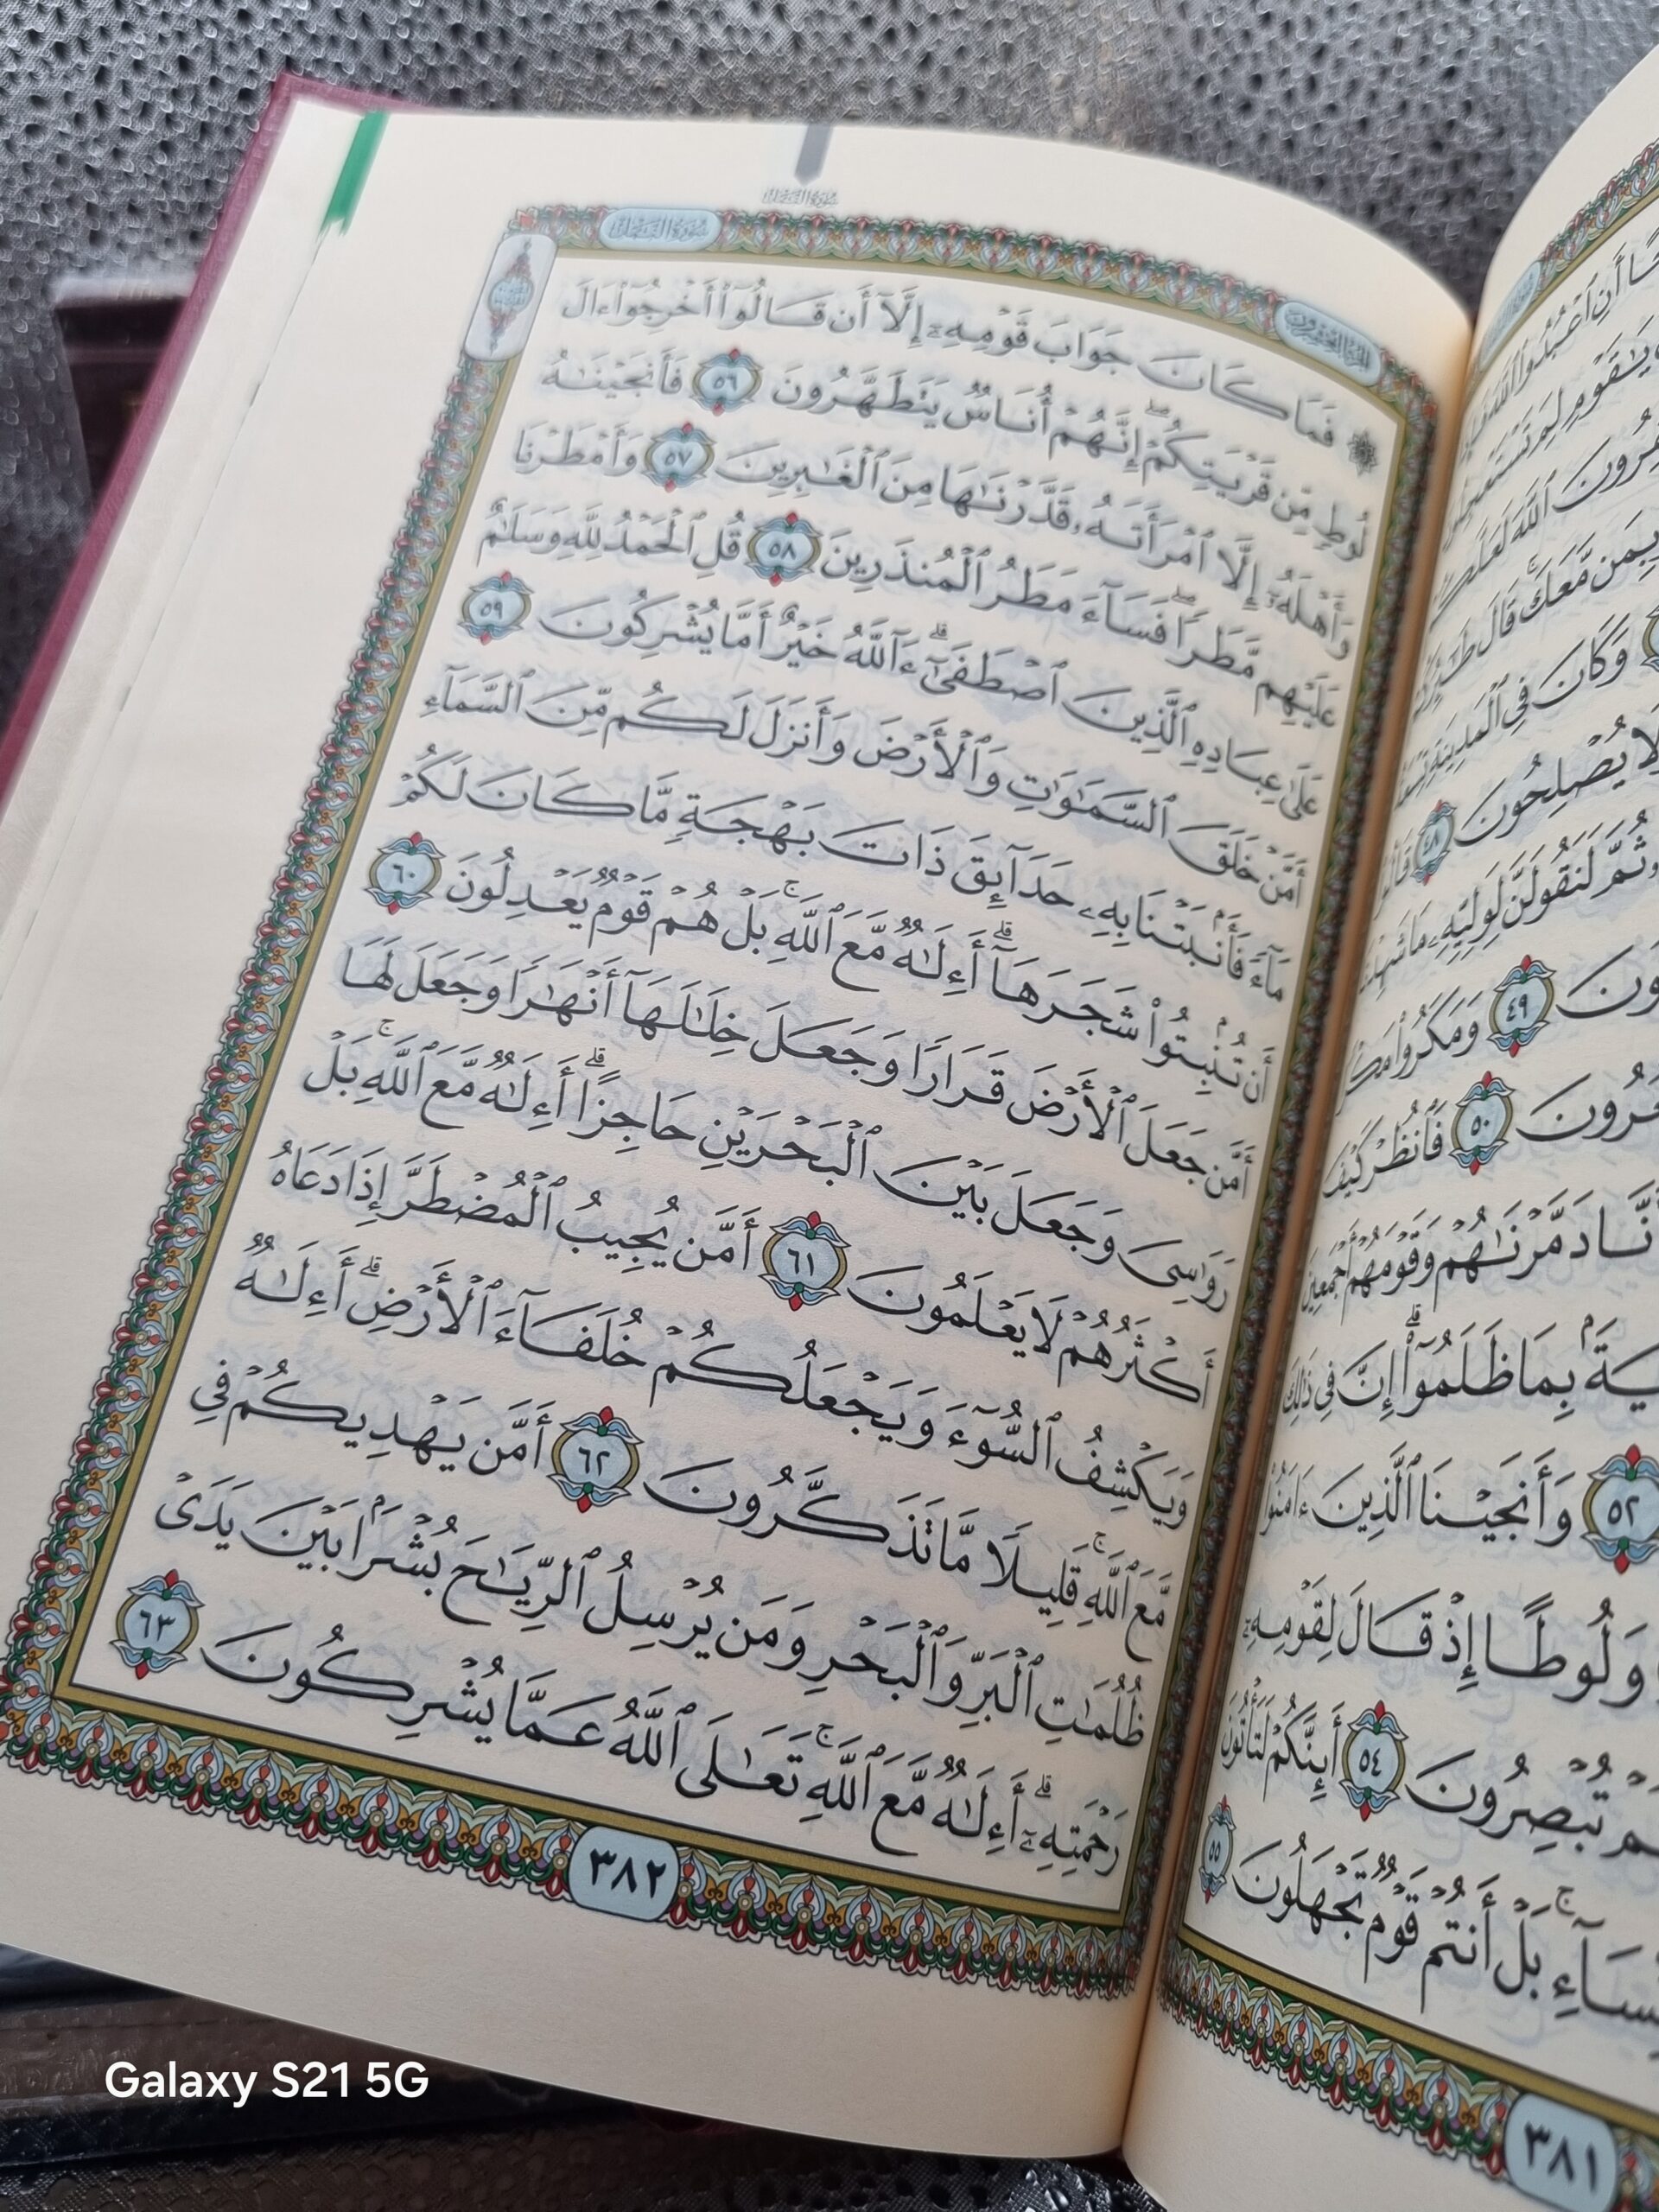 سورة النمل
سورة النمل
الجزء العشرون
۞ فَمَا كَانَ جَوَابَ قَوْمِهِۦٓ إِلَّآ أَن قَالُوٓا۟ أَخْرِجُوٓا۟ ءَالَ
لُوطٍ مِّن قَرْيَتِكُمْ ۖ إِنَّهُمْ أُنَاسٌ يَتَطَهَّرُونَ ٥٦ فَأَنجَيْنَـٰهُ
وَأَهْلَهُۥٓ إِلَّا ٱمْرَأَتَهُۥ قَدَّرْنَـٰهَا مِنَ ٱلْغَـٰبِرِينَ ٥٧ وَأَمْطَرْنَا
عَلَيْهِم مَّطَرًا ۖ فَسَآءَ مَطَرُ ٱلْمُنذَرِينَ ٥٨ قُلِ ٱلْحَمْدُ لِلَّهِ وَسَلَـٰمٌ
عَلَىٰ عِبَادِهِ ٱلَّذِينَ ٱصْطَفَىٰٓ ۗ ءَآللَّهُ خَيْرٌ أَمَّا يُشْرِكُونَ ٥٩
أَمَّنْ خَلَقَ ٱلسَّمَـٰوَٰتِ وَٱلْأَرْضَ وَأَنزَلَ لَكُم مِّنَ ٱلسَّمَآءِ
مَآءً فَأَنۢبَتْنَا بِهِۦ حَدَآئِقَ ذَاتَ بَهْجَةٍ مَّا كَانَ لَكُمْ
أَن تُنۢبِتُوا۟ شَجَرَهَآ ۗ أَءِلَـٰهٌ مَّعَ ٱللَّهِ ۚ بَلْ هُمْ قَوْمٌ يَعْدِلُونَ ٦٠
أَمَّن جَعَلَ ٱلْأَرْضَ قَرَارًا وَجَعَلَ خِلَـٰلَهَآ أَنْهَـٰرًا وَجَعَلَ لَهَا
رَوَٰسِىَ وَجَعَلَ بَيْنَ ٱلْبَحْرَيْنِ حَاجِزًا ۗ أَءِلَـٰهٌ مَّعَ ٱللَّهِ ۚ بَلْ
أَكْثَرُهُمْ لَا يَعْلَمُونَ ٦١ أَمَّن يُجِيبُ ٱلْمُضْطَرَّ إِذَا دَعَاهُ
وَيَكْشِفُ ٱلسُّوٓءَ وَيَجْعَلُكُمْ خُلَفَآءَ ٱلْأَرْضِ ۗ أَءِلَـٰهٌ
مَّعَ ٱللَّهِ ۚ قَلِيلًا مَّا تَذَكَّرُونَ ٦٢ أَمَّن يَهْدِيكُمْ فِى
ظُلُمَـٰتِ ٱلْبَرِّ وَٱلْبَحْرِ وَمَن يُرْسِلُ ٱلرِّيَـٰحَ بُشْرًۢا بَيْنَ يَدَىْ
رَحْمَتِهِۦٓ ۗ أَءِلَـٰهٌ مَّعَ ٱللَّهِ ۚ تَعَـٰلَى ٱللَّهُ عَمَّا يُشْرِكُونَ ٦٣
٣٨٢
أَنِ ٱعْبُدُوا۟ ٱللَّهَ
يَـٰقَوْمِ لِمَ تَسْتَعْجِلُونَ
ٱللَّهَ لَعَلَّكُمْ
وَبِمَن مَّعَكَ ۚ قَالَ طَـٰٓئِرُكُمْ
وَكَانَ فِى ٱلْمَدِينَةِ تِسْعَةُ
لَا يُصْلِحُونَ ٤٨ قَالُوا۟
ثُمَّ لَنَقُولَنَّ لِوَلِيِّهِۦ مَا شَهِدْنَا
٤٩ وَمَكَرُوا۟ مَكْرًا
٥٠ فَٱنظُرْ كَيْفَ
دَمَّرْنَـٰهُمْ وَقَوْمَهُمْ أَجْمَعِينَ
بِمَا ظَلَمُوٓا۟ ۗ إِنَّ فِى ذَٰلِكَ
٥٢ وَأَنجَيْنَا ٱلَّذِينَ ءَامَنُوا۟
وَلُوطًا إِذْ قَالَ لِقَوْمِهِۦٓ
تُبْصِرُونَ ٥٤ أَئِنَّكُمْ لَتَأْتُونَ
بَلْ أَنتُمْ قَوْمٌ تَجْهَلُونَ ٥٥
٣٨١
Galaxy S21 5G